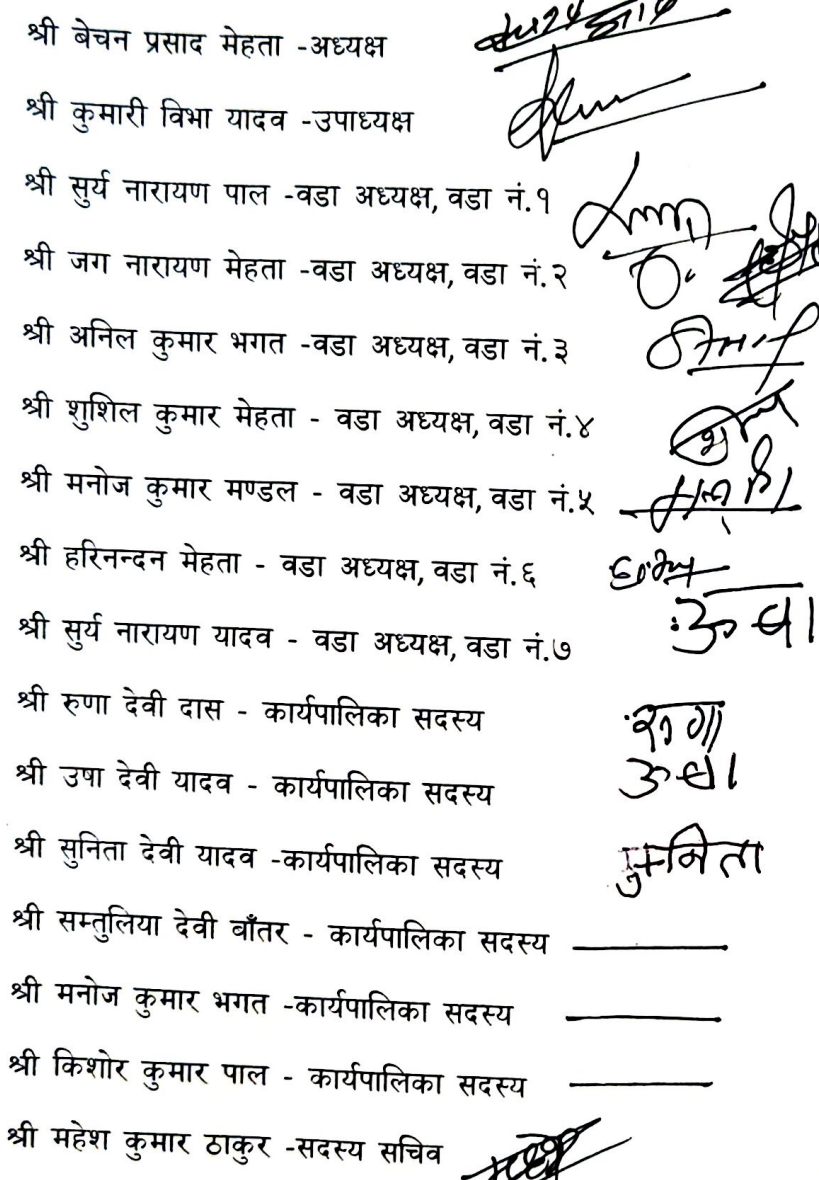 श्री बेचन प्रसाद मेहता -अध्यक्ष
श्री कुमारी विभा यादव -उपाध्यक्ष
श्री सुर्य नारायण पाल -वडा अध्यक्ष, वडा नं.१
श्री जग नारायण मेहता -वडा अध्यक्ष, वडा नं.२
श्री अनिल कुमार भगत -वडा अध्यक्ष, वडा नं.३
श्री शुशिल कुमार मेहता - वडा अध्यक्ष, वडा नं.४
श्री मनोज कुमार मण्डल - वडा अध्यक्ष, वडा नं.५
श्री हरिनन्दन मेहता - वडा अध्यक्ष, वडा नं.६
श्री सुर्य नारायण यादव - वडा अध्यक्ष, वडा नं.७
श्री रुणा देवी दास - कार्यपालिका सदस्य
श्री उषा देवी यादव - कार्यपालिका सदस्य
श्री सुनिता देवी यादव -कार्यपालिका सदस्य
श्री सम्तुलिया देवी बाँतर - कार्यपालिका सदस्य
श्री मनोज कुमार भगत -कार्यपालिका सदस्य
श्री किशोर कुमार पाल - कार्यपालिका सदस्य
श्री महेश कुमार ठाकुर -सदस्य सचिव